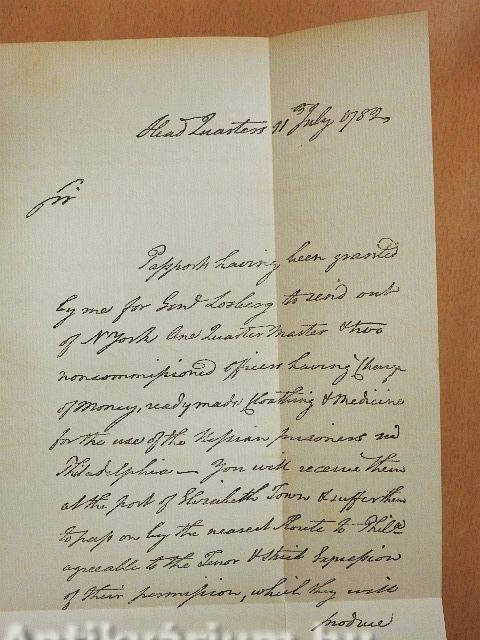 Head Quarters 11th July 1782.
Sir
Passports having been granted
by me for Genl. Losberg to send out
of N York One Quarter Master & two
noncommissioned Officers having Charge
of Money, ready made Cloathing & Medicine
for the use of the Hessian prisoners in
Philadelphia — You will receive them
at the port of Elizabeth Town & suffer them
to pass on by the nearest Route to Phila
agreeable to the Tenor & strict Expression
of their permission, which they will
produce
Antikvárium.hu